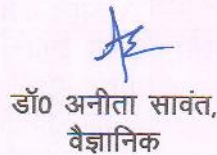 डॉ0 अनीता सावंत,
वैज्ञानिक